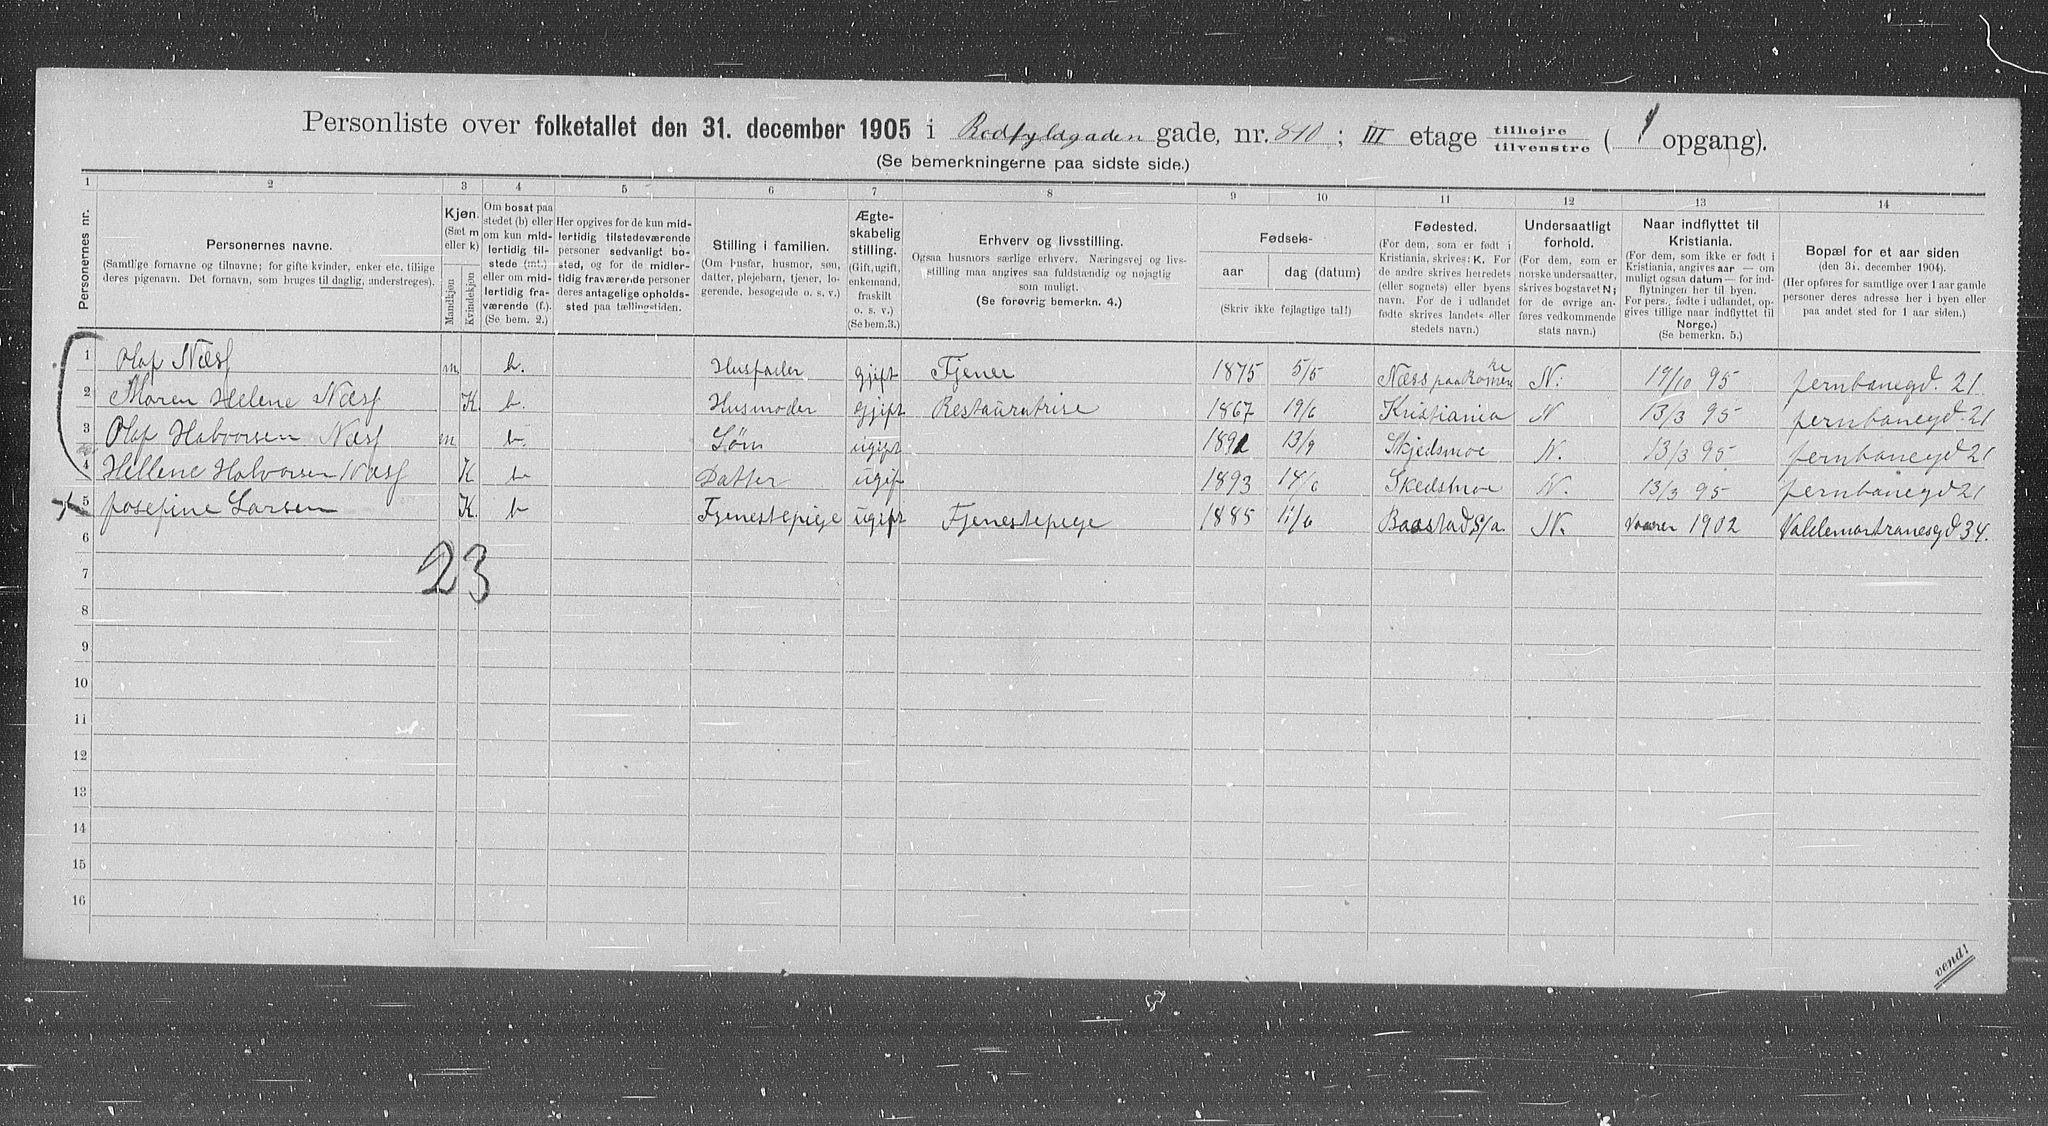 Personliste over folketallet den 31. december 1905 i Rodfyldgaden gade, nr. 810 ; III etage tilhøjre tilvenstre ( 1 opgang).
(Se bemerkningerne paa sidste side.)
1 2 3 4 5 6 7 8 9 10 11 12 13 14
Personernes nr.
Personernes navne.
(Samtlige fornavne og tilnavne; for gifte kvinder, enker etc. tillige
deres pigenavn. Det fornavn, som bruges til daglig, understreges).
Kjøn.
(Sæt m
eller k)
Mandkjøn
Kvindekjøn
Om bosat paa
stedet (b) eller
om kun mid-
lertidig til-
stede (mt.)
eller om mid-
lertidig fra-
værende (f.).
(Se bem. 2.)
Her opgives for de kun mid-
lertidig tilstedeværende
personer sedvanligt bo-
sted, og for de midler-
tidig fraværende personer
deres antagelige opholds-
sted paa tællingstiden.
Stilling i familien.
(Om husfar, husmor, søn,
datter, plejebarn, tjener, lo-
gerende, besøgende o. s. v.)
Ægte-
skabelig
stilling.
(Gift, ugift,
enkemand,
fraskilt
o. s. v.)
(Se bem. 3.)
Erhverv og livsstilling.
Ogsaa husmors særlige erhverv. Næringsvej og livs-
stilling maa angives saa fuldstændig og nøjagtig
som muligt.
(Se forøvrig bemerkn. 4.)
Fødsels-
aar dag (datum)
(Skriv ikke fejlagtige tal!)
Fødested.
(For dem, som er født i
Kristiania, skrives: K. For
de andre skrives herredets
(eller sognets) eller byens
navn. For de i udlandet
fødte skrives landets eller
stedets navn.)
Undersaatligt
forhold.
(For dem, som er
norske undersaatter,
skrives bogstavet N;
for de øvrige an-
føres vedkommende
stats navn.)
Naar indflyttet til
Kristiania.
(For dem, som ikke er født i
Kristiania, angives aar — om
muligt ogsaa datum — for ind-
flytningen her til byen.
For pers., fødte i udlandet, op-
gives tillige naar indflyttet til
Norge.)
(Se bemerkn. 5.)
Bopæl for et aar siden
(den 31. december 1904).
(Her opføres for samtlige over 1 aar gamle
personer deres adresse her i byen eller
paa andet sted for 1 aar siden.)
1 Olaf Næss m b. Husfader gjift Tjener 1875 5/5 Næss paa Romerike N. 19/10 95 jernbanegd. 21
2 Maren Helene Næss K. b. Husmoder gjift Restauratrise 1867 19/6 Kristiania N 13/3 95 jernbanegd. 21
3 Olaf Halvorsen Næss m b. Søn ugift 1891 13/9 Skjedsmoe N. 13/3 95 jernbanegd 21
4 Hellene Halvorsen Næss K b Datter ugif 1893 14/6 Skedsmoe N. 13/3 95 jernbanegd 21
5 Josefine Larsen K. b Tjenestepige ugift Tjenestepege 1885 11/6 Baastad s/a N. Vaaren 1902 Valdemartranesgd 34.
6
23
7
8
9
10
11
12
13
14
15
16
vend!